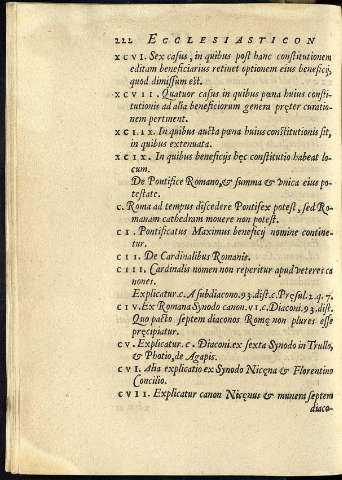 222 ECCLESIASTICON
XCVI. Sex casus, in quibus post hanc constitutionem
editam beneficiarius retinet optionem eius beneficij,
quod dimissum est.
XCVII. Quatuor casus in quibus pœna huius consti-
tutionis ad alia beneficiorum genera pręter curatio-
nem pertinent.
XCIIX. In quibus aucta pœna huius constitutionis sit,
in quibus extenuata.
XCIX. In quibus beneficijs hęc constitutio habeat lo-
cum.
De Pontifice Romano, & summa & vnica eius po-
testate.
C. Roma ad tempus discedere Pontifex potest, sed Ro-
manam cathedram mouere non potest.
CI. Pontificatus Maximus beneficij nomine contine-
tur.
CII. De Cardinalibus Romanis.
CIII. Cardinalis nomen non reperitur apud veteres ca
nones.
Explicatur.c. A subdiacono.93.dist.c. Pręsul.2.4.7.
CIV. Ex Romana Synodo canon.vi.c. Diaconi.93.dist.
Quo pacto septem diaconos Romę non plures esse
pręcipiatur.
CV. Explicatur.c. Diaconi.ex sexta Synodo in Trullo,
& Photio, de Agapis.
CVI. Alia explicatio ex Synodo Nicęna & Florentino
Concilio.
CVII. Explicatur canon Nicęnus & munera septem
diaco-